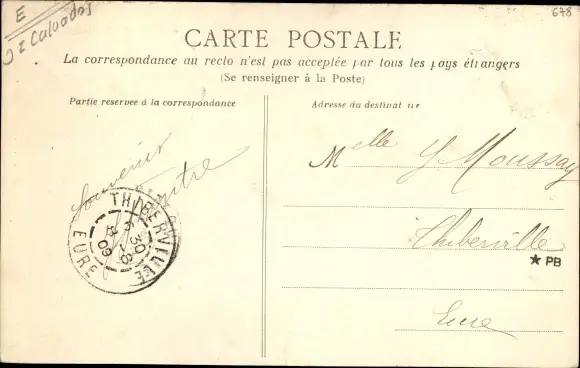 E
Calvados
678
CARTE POSTALE
La correspondance au recto n'est pas acceptée par tous les pays étrangers
(Se renseigner à la Poste)
Partie réservée à la correspondance
Adresse du destinat
Souvenir
Melle Y Moussay
Thiberville
Eure
THIBERVILLE
6 30
18
8
09
EURE
★ PB